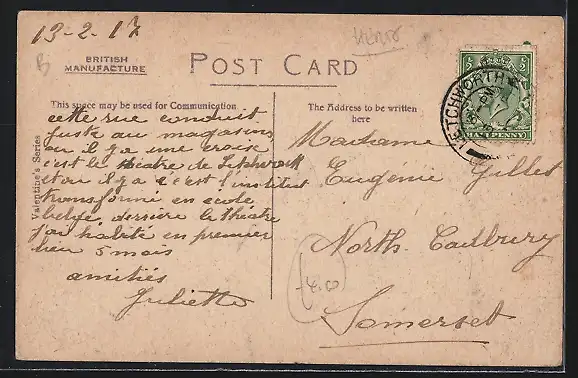 13-2-17
B
BRITISH
MANUFACTURE
POST CARD
This space may be used for Communication
The Address to be written
here
Valentine's Series
cette rue conduit
juste au magasins
ou il y a une croise
c'est le théatre de Letchworth
et ou il y a c'est l'institut
transformé en ecole
belge derrière le théatre
j'ai habité en premier
lieu 5 mois
amitiés
Juliette
Madame
Eugenie Gillet
North. Cadbury
Somerset
4.00
LETCHWORTH
HALFPENNY